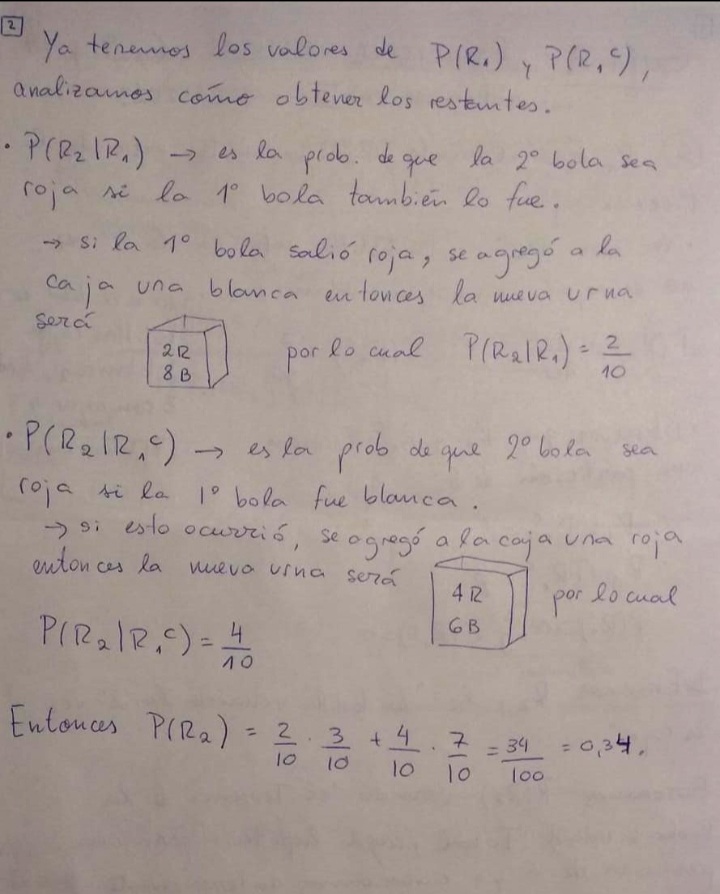 2
Ya tenemos los valores de P(R₁) y P(R₁ᶜ),
analizamos cómo obtener los restantes.
• P(R₂|R₁) → es la prob. de que la 2º bola sea
roja si la 1º bola también lo fue.
→ si la 1º bola salió roja, se agregó a la
caja una blanca entonces la nueva urna
será
2R
8B
por lo cual P(R₂|R₁) = 2/10
• P(R₂|R₁ᶜ) → es la prob de que 2º bola sea
roja si la 1º bola fue blanca.
→ si esto ocurrió, se agregó a la caja una roja
entonces la nueva urna será
4R
6B
por lo cual
P(R₂|R₁ᶜ) = 4/10
Entonces P(R₂) = 2/10 · 3/10 + 4/10 · 7/10 = 34/100 = 0,34.